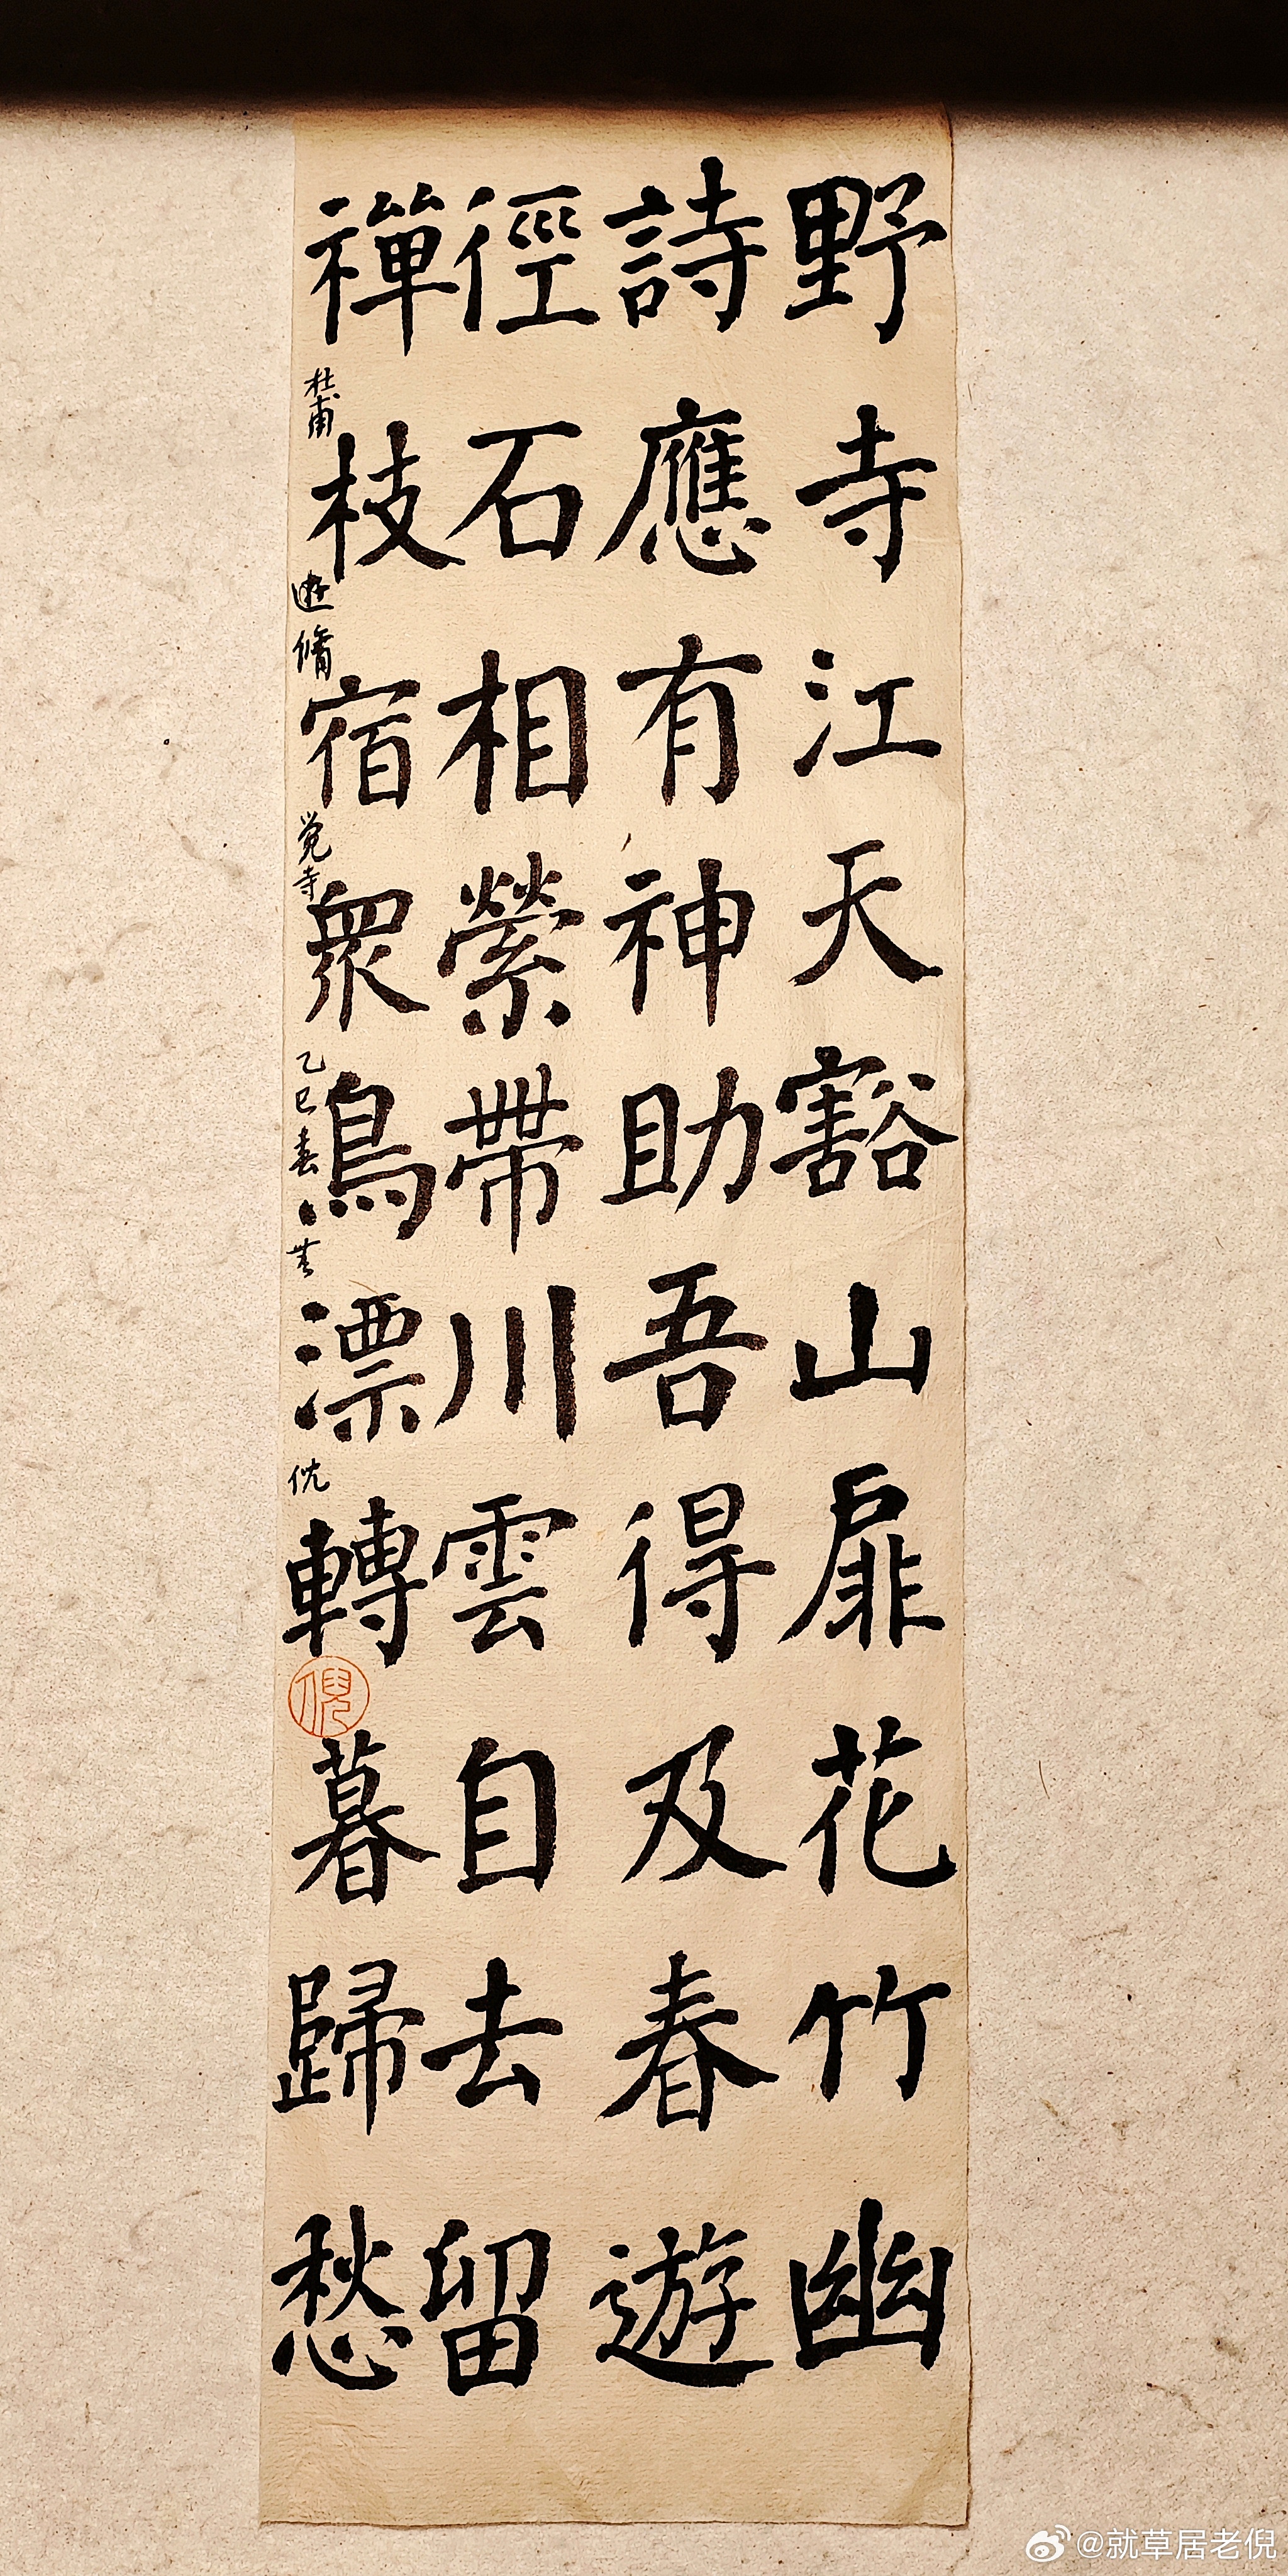 野寺江天豁山扉花竹幽
詩應有神助吾得及春遊
徑石相縈帶川雲自去留
禪枝宿衆鳥漂轉暮歸愁
杜甫遊脩覚寺乙巳春
倪
倪
@就草居老倪